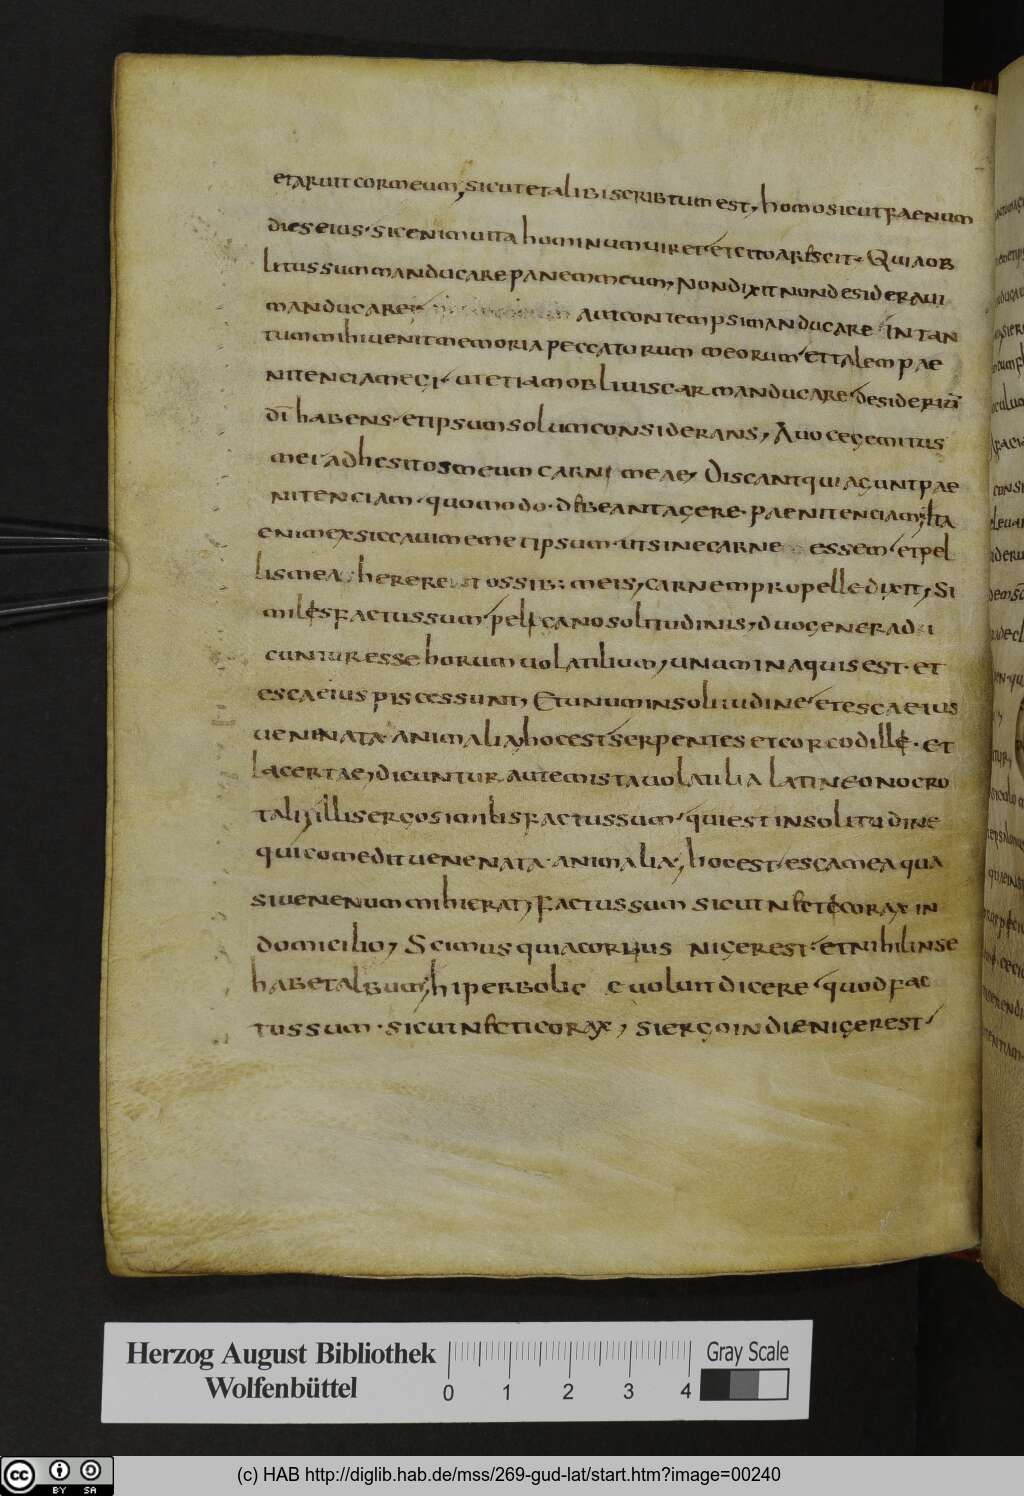 et aruit cor meum, sicut et alibi scribtum est, homo sicut faenum
dies eius· sic enim uita hominum uiret· et cito arescit· Quia ob
litus sum manducare panem meum, Non dixit non desideraui
manducare aut contempsi manducare In tan
tum mihi uenit memoria peccatorum meorum· et talem pae
nitenciam egi· ut etiam obliuiscar manducare· desideriū
dī habens· et ipsum solum considerans, A uoce gemitus
mei adhesit os meum carni meae, Discant qui agunt pae
nitenciam· quomodo· debeant agere· paenitenciam, Ita
enim exsiccaui memetipsum· ut sine carne essem· et pel
lis mea herere ossib: meis, carnem pro pelle dixit, Si
miles factus sum· pellicano solitudinis, duo genera di
cuntur esse horum uolatilium, unum in aquis est· et
esca eius pisces sunt, Et unum in solitudine· et esca eius
uenenata· animalia, hoc est serpentes et corcodille· et
lacertae, dicuntur autem ista uolatilia latine onocro
tali, illis ergo similis factus sum· qui est in solitudine
qui comedit uenenata· animalia, hoc est· esca mea qua
si uenenum mihi erat, Factus sum sicut nicticorax in
domicilio, Scimus quia coruus niger est· et nihil in se
habet album, hiperbolic e uoluit dicere· quod fac
tus sum· sicut nicticorax, si ergo in die niger est·
Herzog August Bibliothek
Wolfenbüttel
0 1 2 3 4
Gray Scale
cc BY SA
(c) HAB http://diglib.hab.de/mss/269-gud-lat/start.htm?image=00240